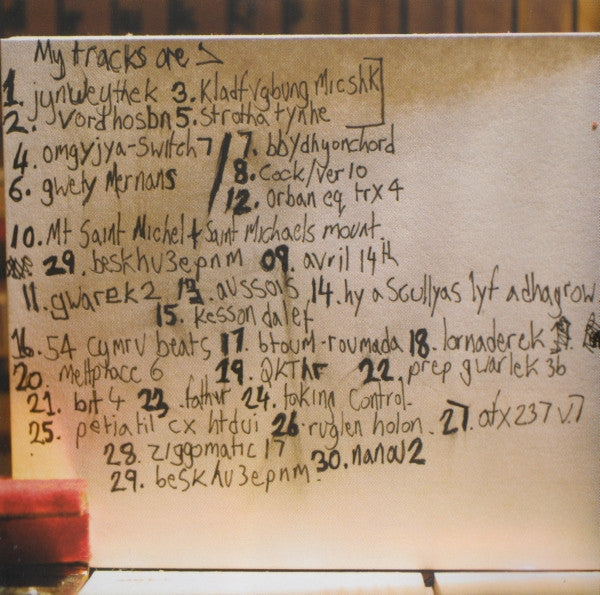 My tracks are >
1. jynweythek 3. Kladfvgbung Micshk
2. Vordhosbn 5. Strotha tynhe
4. omgyjya-Switch 7 / 7. bbydhyonchord
6. gwety Mernans 8. Cock/Ver10
12. Orban eq trx 4
10. Mt Saint Michel + Saint Michaels mount.
29. beskhu3epnm 09. avril 14th
11. gwarek 2 13. aussois 14. hy a Scullyas lyf adhagrow
15. kesson dalef
16. 54 cymru beats 17. btoum-roumada 18. lornaderek
20. meltphace 6 19. QKThr 22. prep gwarlek 3b
21. bit 4 23. father 24. taking Control.
25. petiatil cx htdui 26. ruglen holon. 27. afx237 v.7
28. ziggomatic 17
29. beskhu3epnm. 30. nanou2